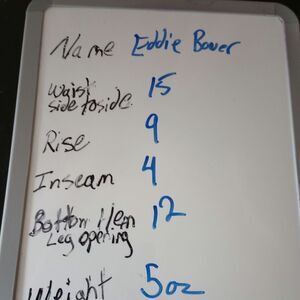 Name Eddie Bauer
Waist 15
side to side
Rise 9
Inseam 4
Bottom Hem 12
Leg opening
Weight 5oz